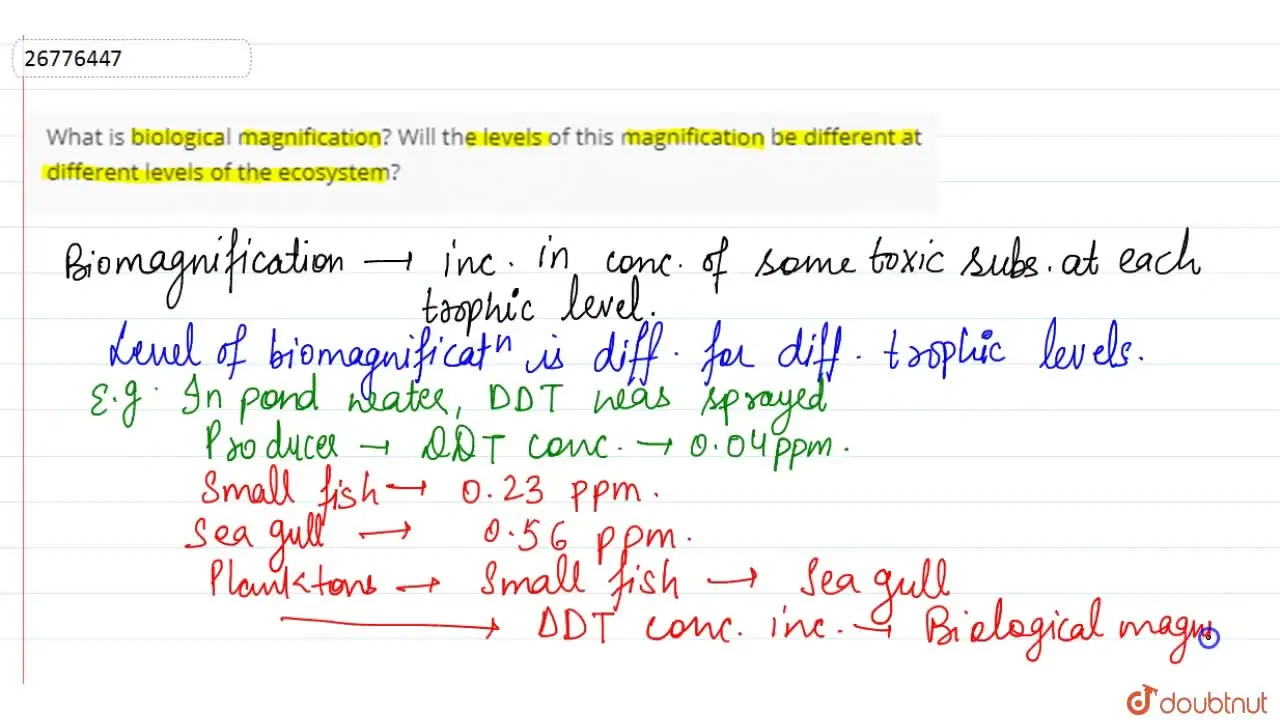 26776447
What is biological magnification? Will the levels of this magnification be different at
different levels of the ecosystem?
Biomagnification → inc. in conc. of some toxic subs. at each
trophic level.
Level of biomagnificatⁿ is diff. for diff. trophic levels.
E.g. In pond water, DDT was sprayed
Producer → DDT conc. → 0.04 ppm.
Small fish → 0.23 ppm.
Sea gull → 0.56 ppm.
Planktons → Small fish → Sea gull
→ DDT conc. inc. → Biological magn
doubtnut